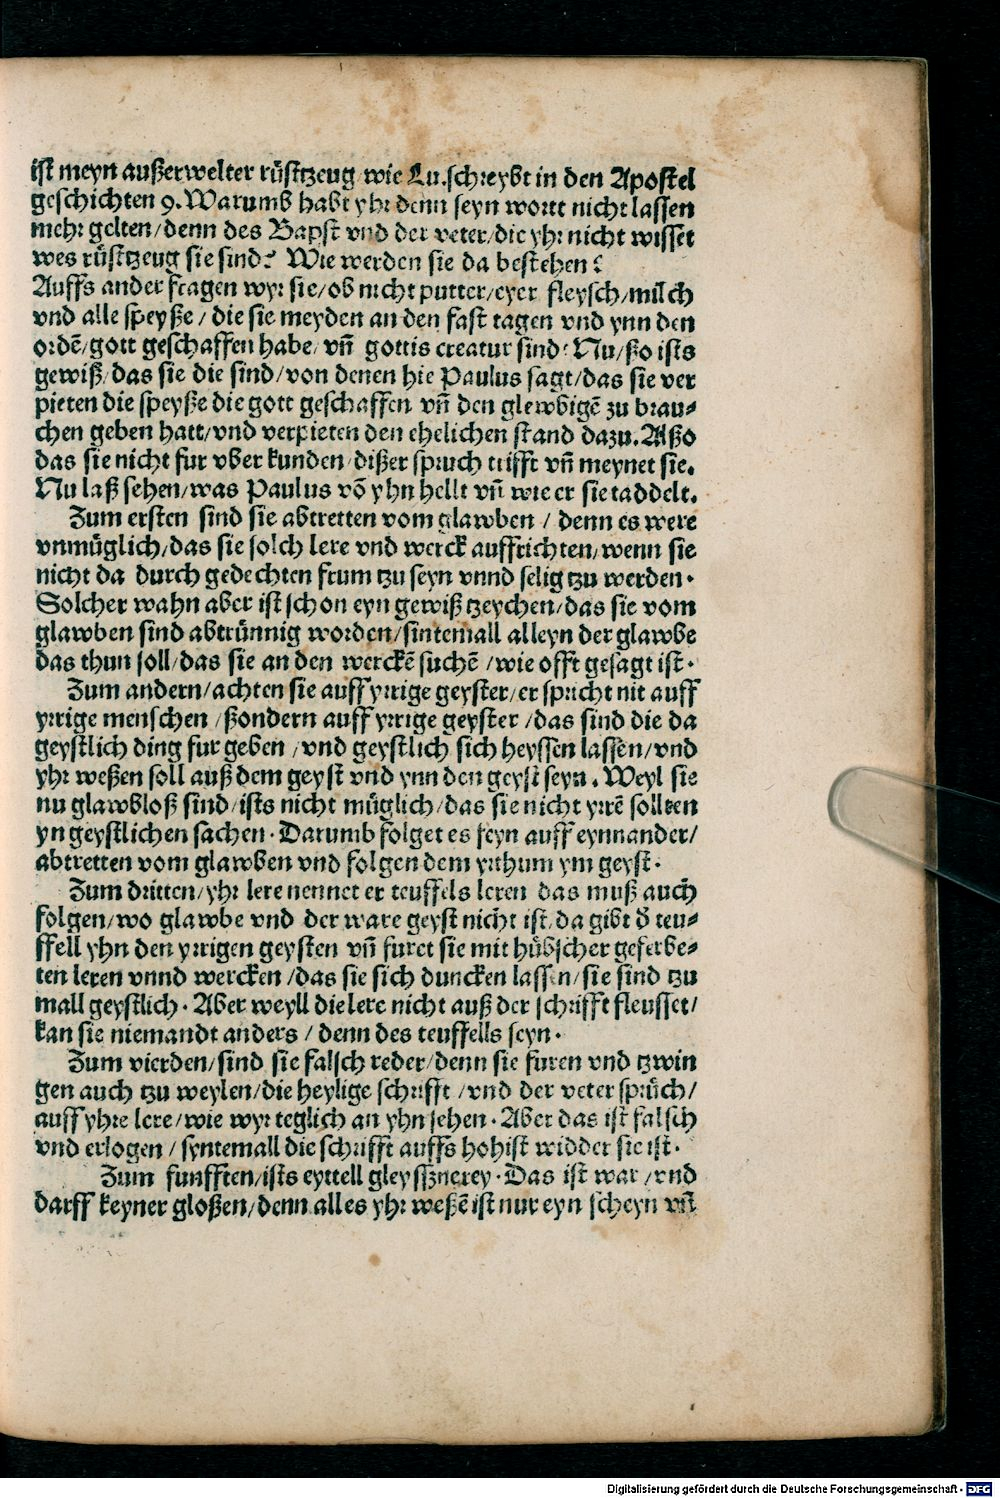 ist meyn außerwelter rüstzeug wie Lu.schreybt in den Apostel
geschichten 9. Warumb habt yhr denn seyn wortt nicht lassen
mehr gelten/denn des Bapst vnd der veter/die yhr nicht wisset
wes rüstzeug sie sind? Wie werden sie da bestehen?
Auffs ander fragen wyr sie/ob nicht putter/eyer fleysch/milch
vnd alle speyße/die sie meyden an den fast tagen vnd ynn den
ordē/gott geschaffen habe/vn̄ gottis creatur sind? Nu/ßo ists
gewiß/das sie die sind/von denen hie Paulus sagt/das sie ver
pieten die speyße die gott geschaffen vn̄ den glewbigē zu brau⸗
chen geben hatt/vnd verpieten den ehelichen stand dazu. Alßo
das sie nicht fur vber kunden/dißer spruch trifft vn̄ meynet sie.
Nu laß sehen/was Paulus vō yhn hellt vn̄ wie er sie taddelt.
Zum ersten sind sie abtretten vom glawben/denn es were
vnmüglich/das sie solch lere vnd werck auffrichten/wenn sie
nicht da durch gedechten frum tzu seyn vnnd selig tzu werden.
Solcher wahn aber ist schon eyn gewiß tzeychen/das sie vom
glawben sind abtrünnig worden/sintemall alleyn der glawbe
das thun soll/das sie an den werckē suchē/wie offt gesagt ist.
Zum andern/achten sie auff yrrige geyster/er spricht nit auff
yrrige menschen/ßondern auff yrrige geyster/das sind die da
geystlich ding fur geben/vnd geystlich sich heyssen lassen/vnd
yhr weßen soll auß dem geyst vnd ynn den geyst seyn. Weyl sie
nu glawbloß sind/ists nicht müglich/das sie nicht yrrē sollten
yn geystlichen sachen. Darumb folget es feyn auff eynnander/
abtretten vom glawben vnd folgen dem yrthum ym geyst.
Zum dritten/yhr lere nennet er teuffels leren das muß auch
folgen/wo glawbe vnd der ware geyst nicht ist/da gibt d̄ teu⸗
ffell yhn den yrrigen geysten vn̄ furet sie mit hübscher geferbe⸗
ten leren vnnd wercken/das sie sich duncken lassen/sie sind tzu
mall geystlich. Aber weyll die lere nicht auß der schrifft fleusset/
kan sie niemandt anders/denn des teuffells seyn.
Zum vierden/sind sie falsch reder/denn sie furen vnd tzwin
gen auch tzu weylen/die heylige schrifft/vnd der veter sprüch/
auff yhre lere/wie wyr teglich an yhn sehen. Aber das ist falsch
vnd erlogen/syntemall die schrifft auffs hohist widder sie ist.
Zum funfften/ists eyttell gleyssznerey. Das ist war/vnd
darff keyner gloßen/denn alles yhr weßē ist nur eyn scheyn vn̄
Digitalisierung gefördert durch die Deutsche Forschungsgemeinschaft · DFG